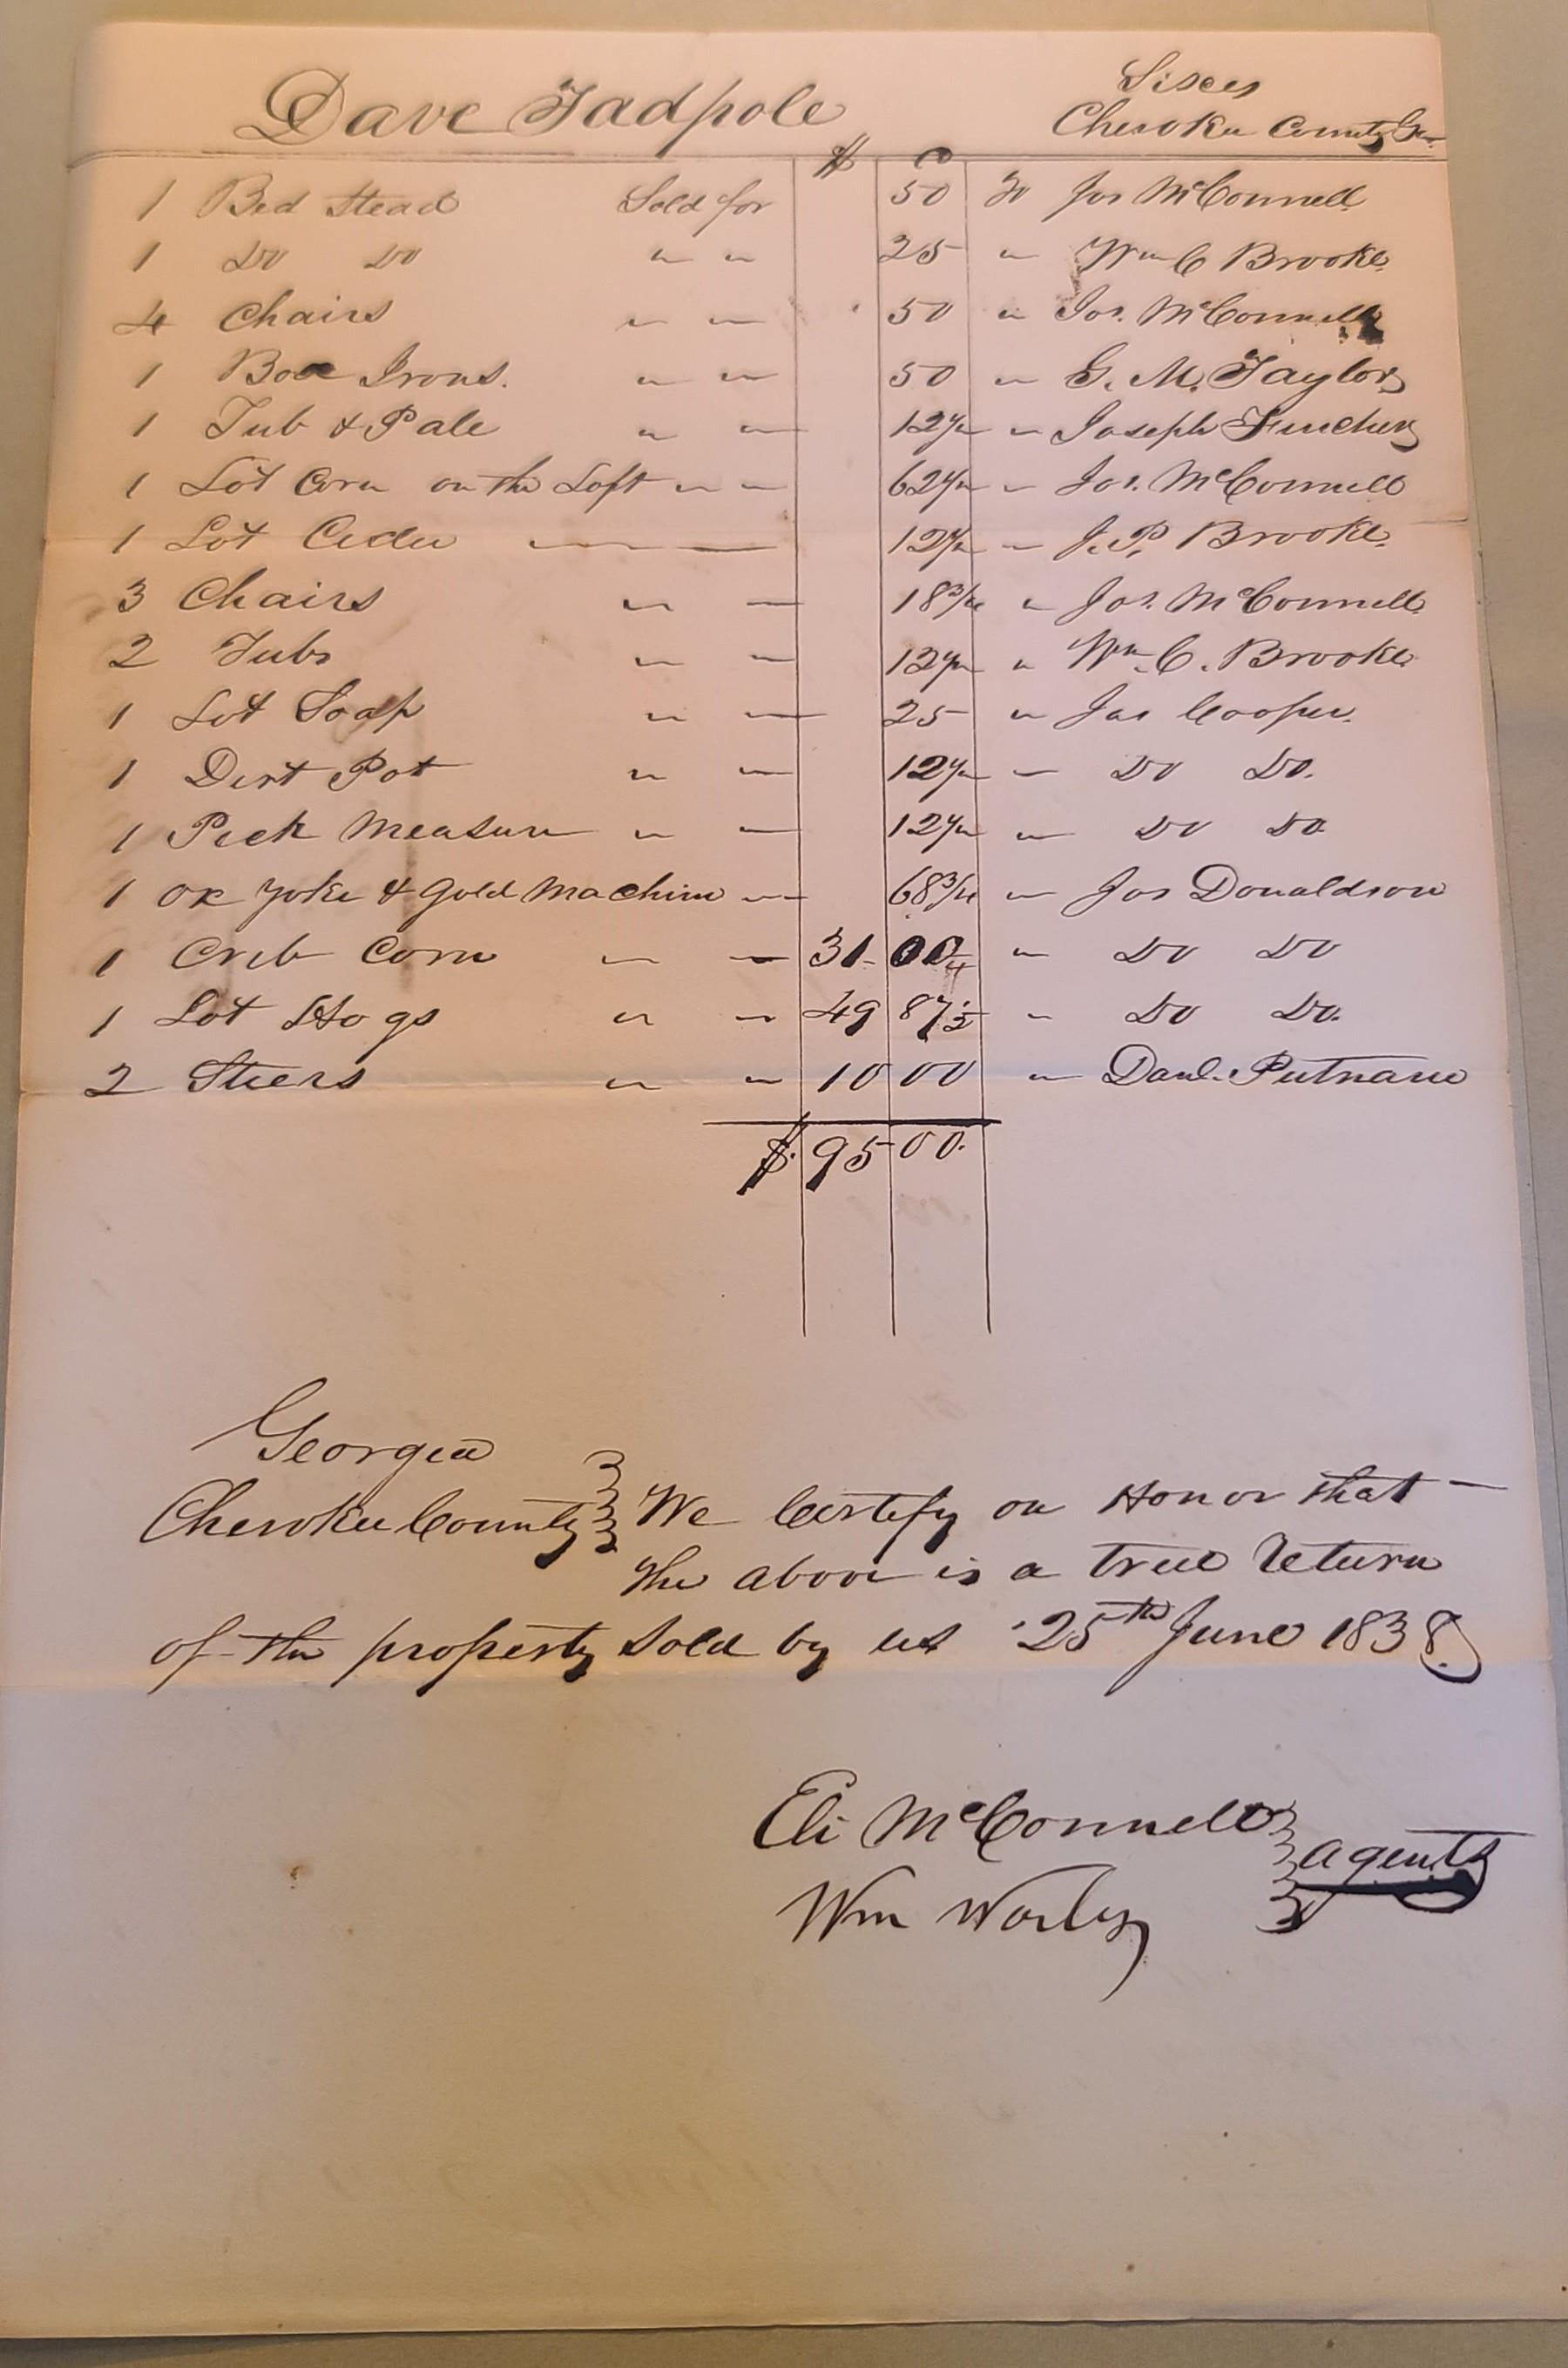 Dave Tadpole
Sixes
Cherokee County Ga.
$ c
1 Bed Stead Sold for 50 To Jos McConnell
1 Do Do " " 25 " Wm C Brooke
4 Chairs " " 50 " Jos. McConnell
1 Box Irons. " " 50 " G. M. Taylor
1 Tub & Pale " " 12½ " Joseph Fincher
1 Lot Corn on the Loft " " 62½ " Jos. McConnell
1 Lot Ceder " " 12½ " J. P. Brooke.
3 Chairs " " 18¾ " Jos. McConnell
2 Tubs " " 12½ " Wm. C. Brooke
1 Lot Soap " " 25 " Jas Cooper.
1 Dirt Pot " " 12½ " Do Do.
1 Peck Measure " " 12½ " Do Do
1 Ox Yoke & Gold Machine " " 68¾ " Jos Donaldson
1 Crib Corn " " 31 00 " Do Do
1 Lot Hogs " " 49 87½ " Do Do.
2 Steers " " 10 00 " Danl. Putnam
$ 95 00.
Georgia
Cherokee County We Certify on Honor that
the above is a true Return
of the property Sold by us 25th June 1838
Eli McConnell
agents
Wm Worley